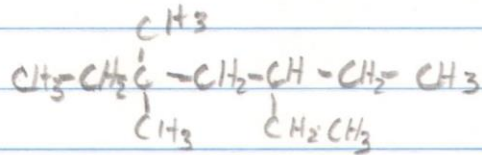 CH3
CH3-CH2-C-CH2-CH-CH2-CH3
CH3 CH2-CH3